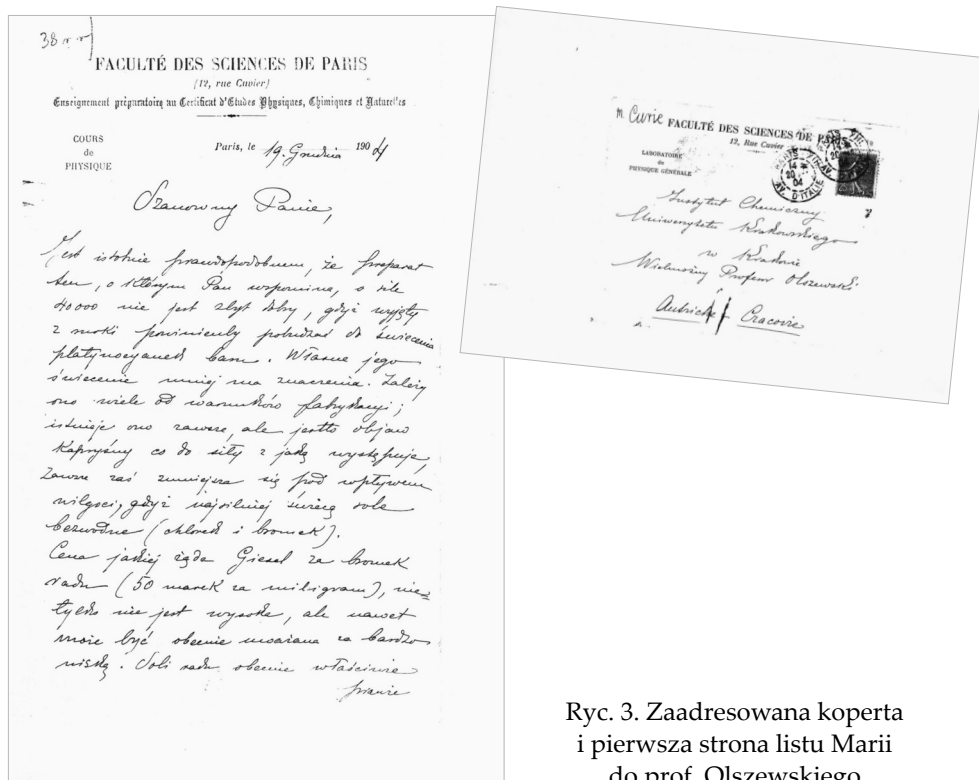 38
FACULTÉ DES SCIENCES DE PARIS
(12, rue Cuvier)
Enseignement préparatoire au Certificat d'Etudes Physiques, Chimiques et Naturelles
COURS
de
PHYSIQUE
Paris, le 19. Grudnia 1904
Szanowny Panie,
Jest istotnie prawdopodobnem, że preparat
ten, o którym Pan wspomina, o sile
40000 nie jest zbyt dobry, gdyż wyjęty
z powinienby pobudzać do świecenia
platynocyanek baru. Własne jego
świecenie mniej ma znaczenia. Zależy
ono wiele od warunków fabrykacyi;
istnieje ono zawsze, ale jestto objaw
kapryśny co do siły z jaką występuje,
Zawsze zaś zmniejsza się pod wpływem
wilgoci, gdyż najsilniej świecą sole
bezwodne (chlorek i bromek).
Cena jakiej żąda Giesel za bromek
radu (50 marek za miligram), nie=
tylko nie jest wysoka, ale nawet
może być obecnie uważana za bardzo
niską. Soli radu obecnie właściwie
prawie
m Curie FACULTÉ DES SCIENCES DE PARIS
12, Rue Cuvier
LABORATOIRE
de
PHYSIQUE GÉNÉRALE
PARIS XIII
14
20
04
AV. D'ITALIE
Instytut Chemiczny
Uniwersytetu Krakowskiego
w Krakowie
Wielmożny Profesor Olszewski
Autriche Cracovie
Ryc. 3. Zaadresowana koperta
i pierwsza strona listu Marii
do prof. Olszewskiego